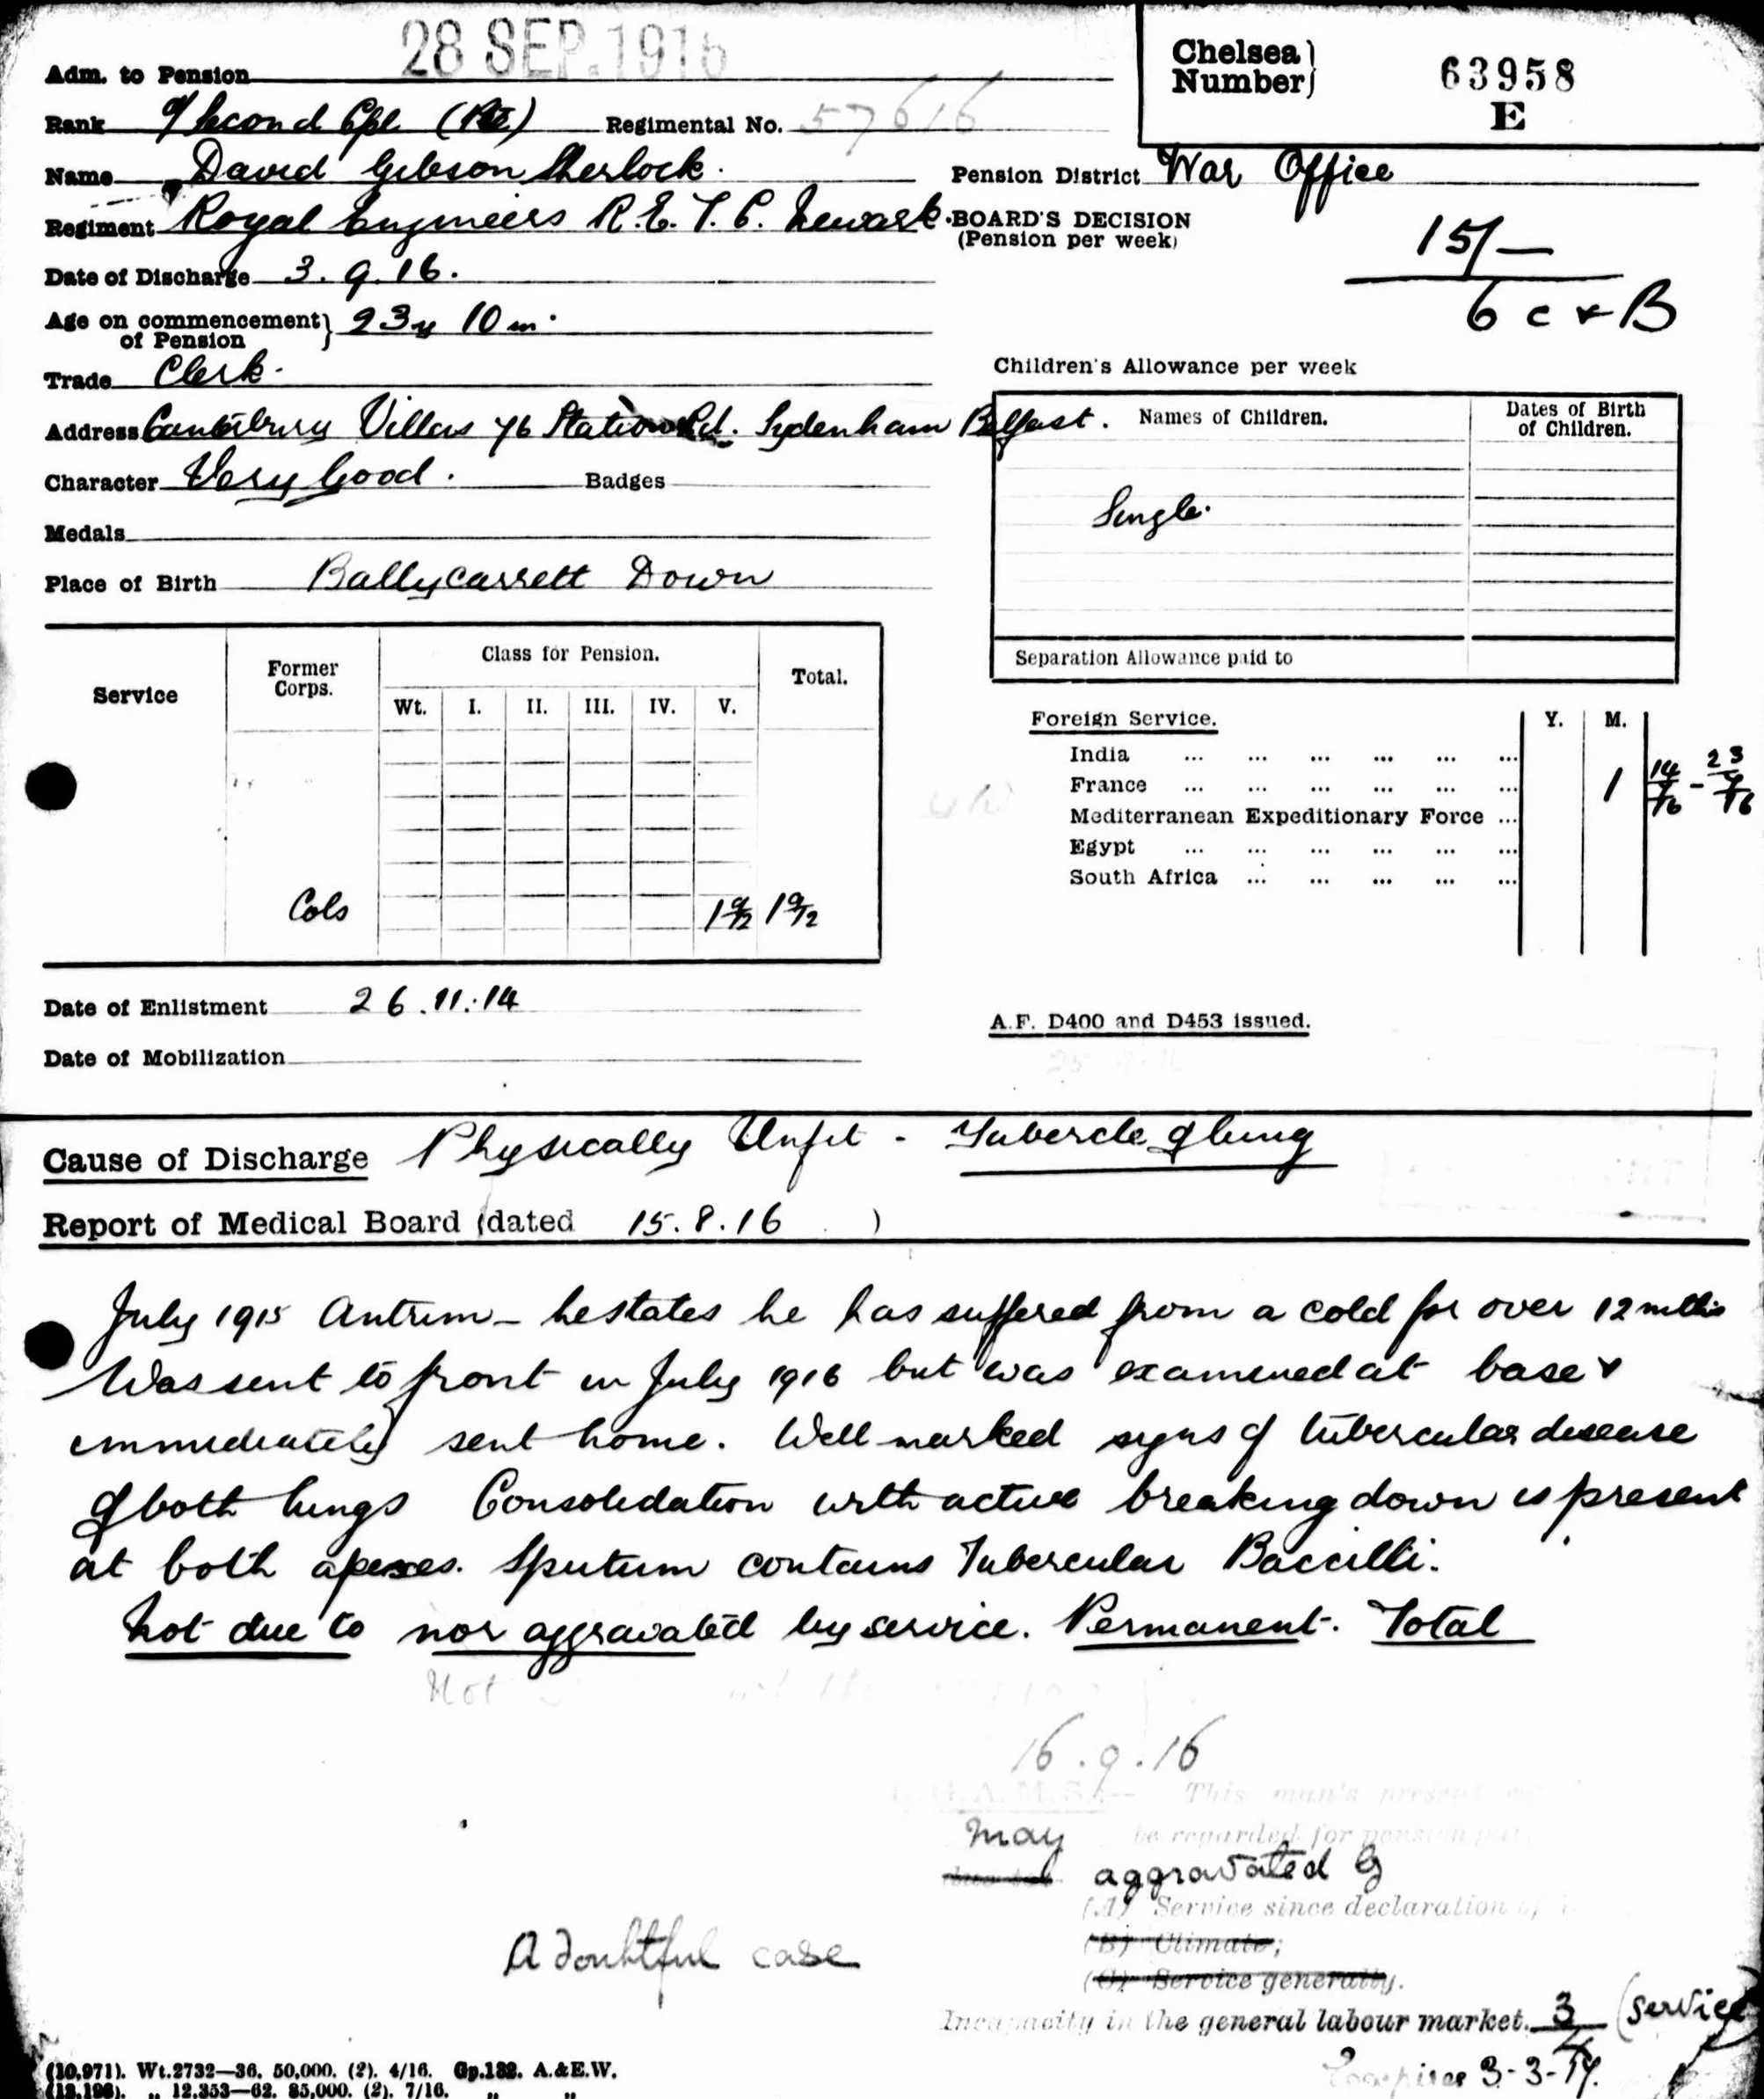 28 SEP. 1916
Adm. to Pension
Chelsea Number 63958
E
Rank Second Cpl
Regimental No. 57616
Name David Gibson Sherlock.
Pension District War Office
Regiment Royal Engineers R.E. T. C. Newark.
BOARD'S DECISION
(Pension per week)
15/-
6 c & B
Date of Discharge 3.9.16.
Age on commencement of Pension 23y 10m.
Trade Clerk.
Children's Allowance per week
Address Canterbury Villas 76 Station Rd. Sydenham Belfast.
Names of Children.
Dates of Birth of Children.
Character Very Good.
Badges
Single.
Medals
Place of Birth Ballycarrett Down
Separation Allowance paid to
Service
Former Corps.
Class for Pension.
Total.
Wt. I. II. III. IV. V.
Cols 1 9/12 1 9/12
Foreign Service. Y. M.
India ... ... ... ... ... ...
France ... ... ... ... ... ... 1
Mediterranean Expeditionary Force ...
Egypt ... ... ... ... ... ...
South Africa ... ... ... ... ...
Date of Enlistment 26.11.14
A.F. D400 and D453 issued.
Date of Mobilization
Cause of Discharge Physically Unfit - Tubercle of lung
Report of Medical Board (dated 15.8.16 )
July 1915 Antrim - he states he has suffered from a cold for over 12 mths
Was sent to front in July 1916 but was examined at base &
immediately sent home. Well marked signs of tubercular disease
of both lungs Consolidation with active breaking down is present
at both apexes. Sputum contains Tubercular Baccilli.
Not due to nor aggravated by service. Permanent. Total
Not
16.9.16
This man's present
may be regarded for pension
aggravated by
(A) Service since declaration of
(B) Climate;
(C) Service generally.
A doubtful case
Incapacity in the general labour market. 3/4 (service
Expires 3-3-17.
(10,971). Wt.2732—36. 50,000. (2). 4/16. Gp.132. A.&E.W.
(12,196). „ 12,353—62. 85,000. (2). 7/16. „ „